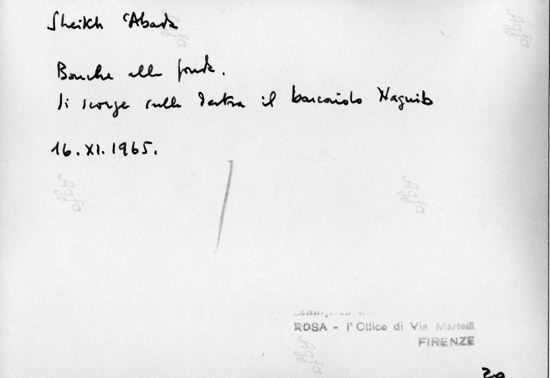 Sheikh 'Abada
Barche alla fonda.
Si scorge sulla destra il barcaiolo Naguib
16.XI.1965.
Agfa
Agfa
Agfa
Agfa
Agfa
ROSA - l'Ottico di Via Martelli
FIRENZE